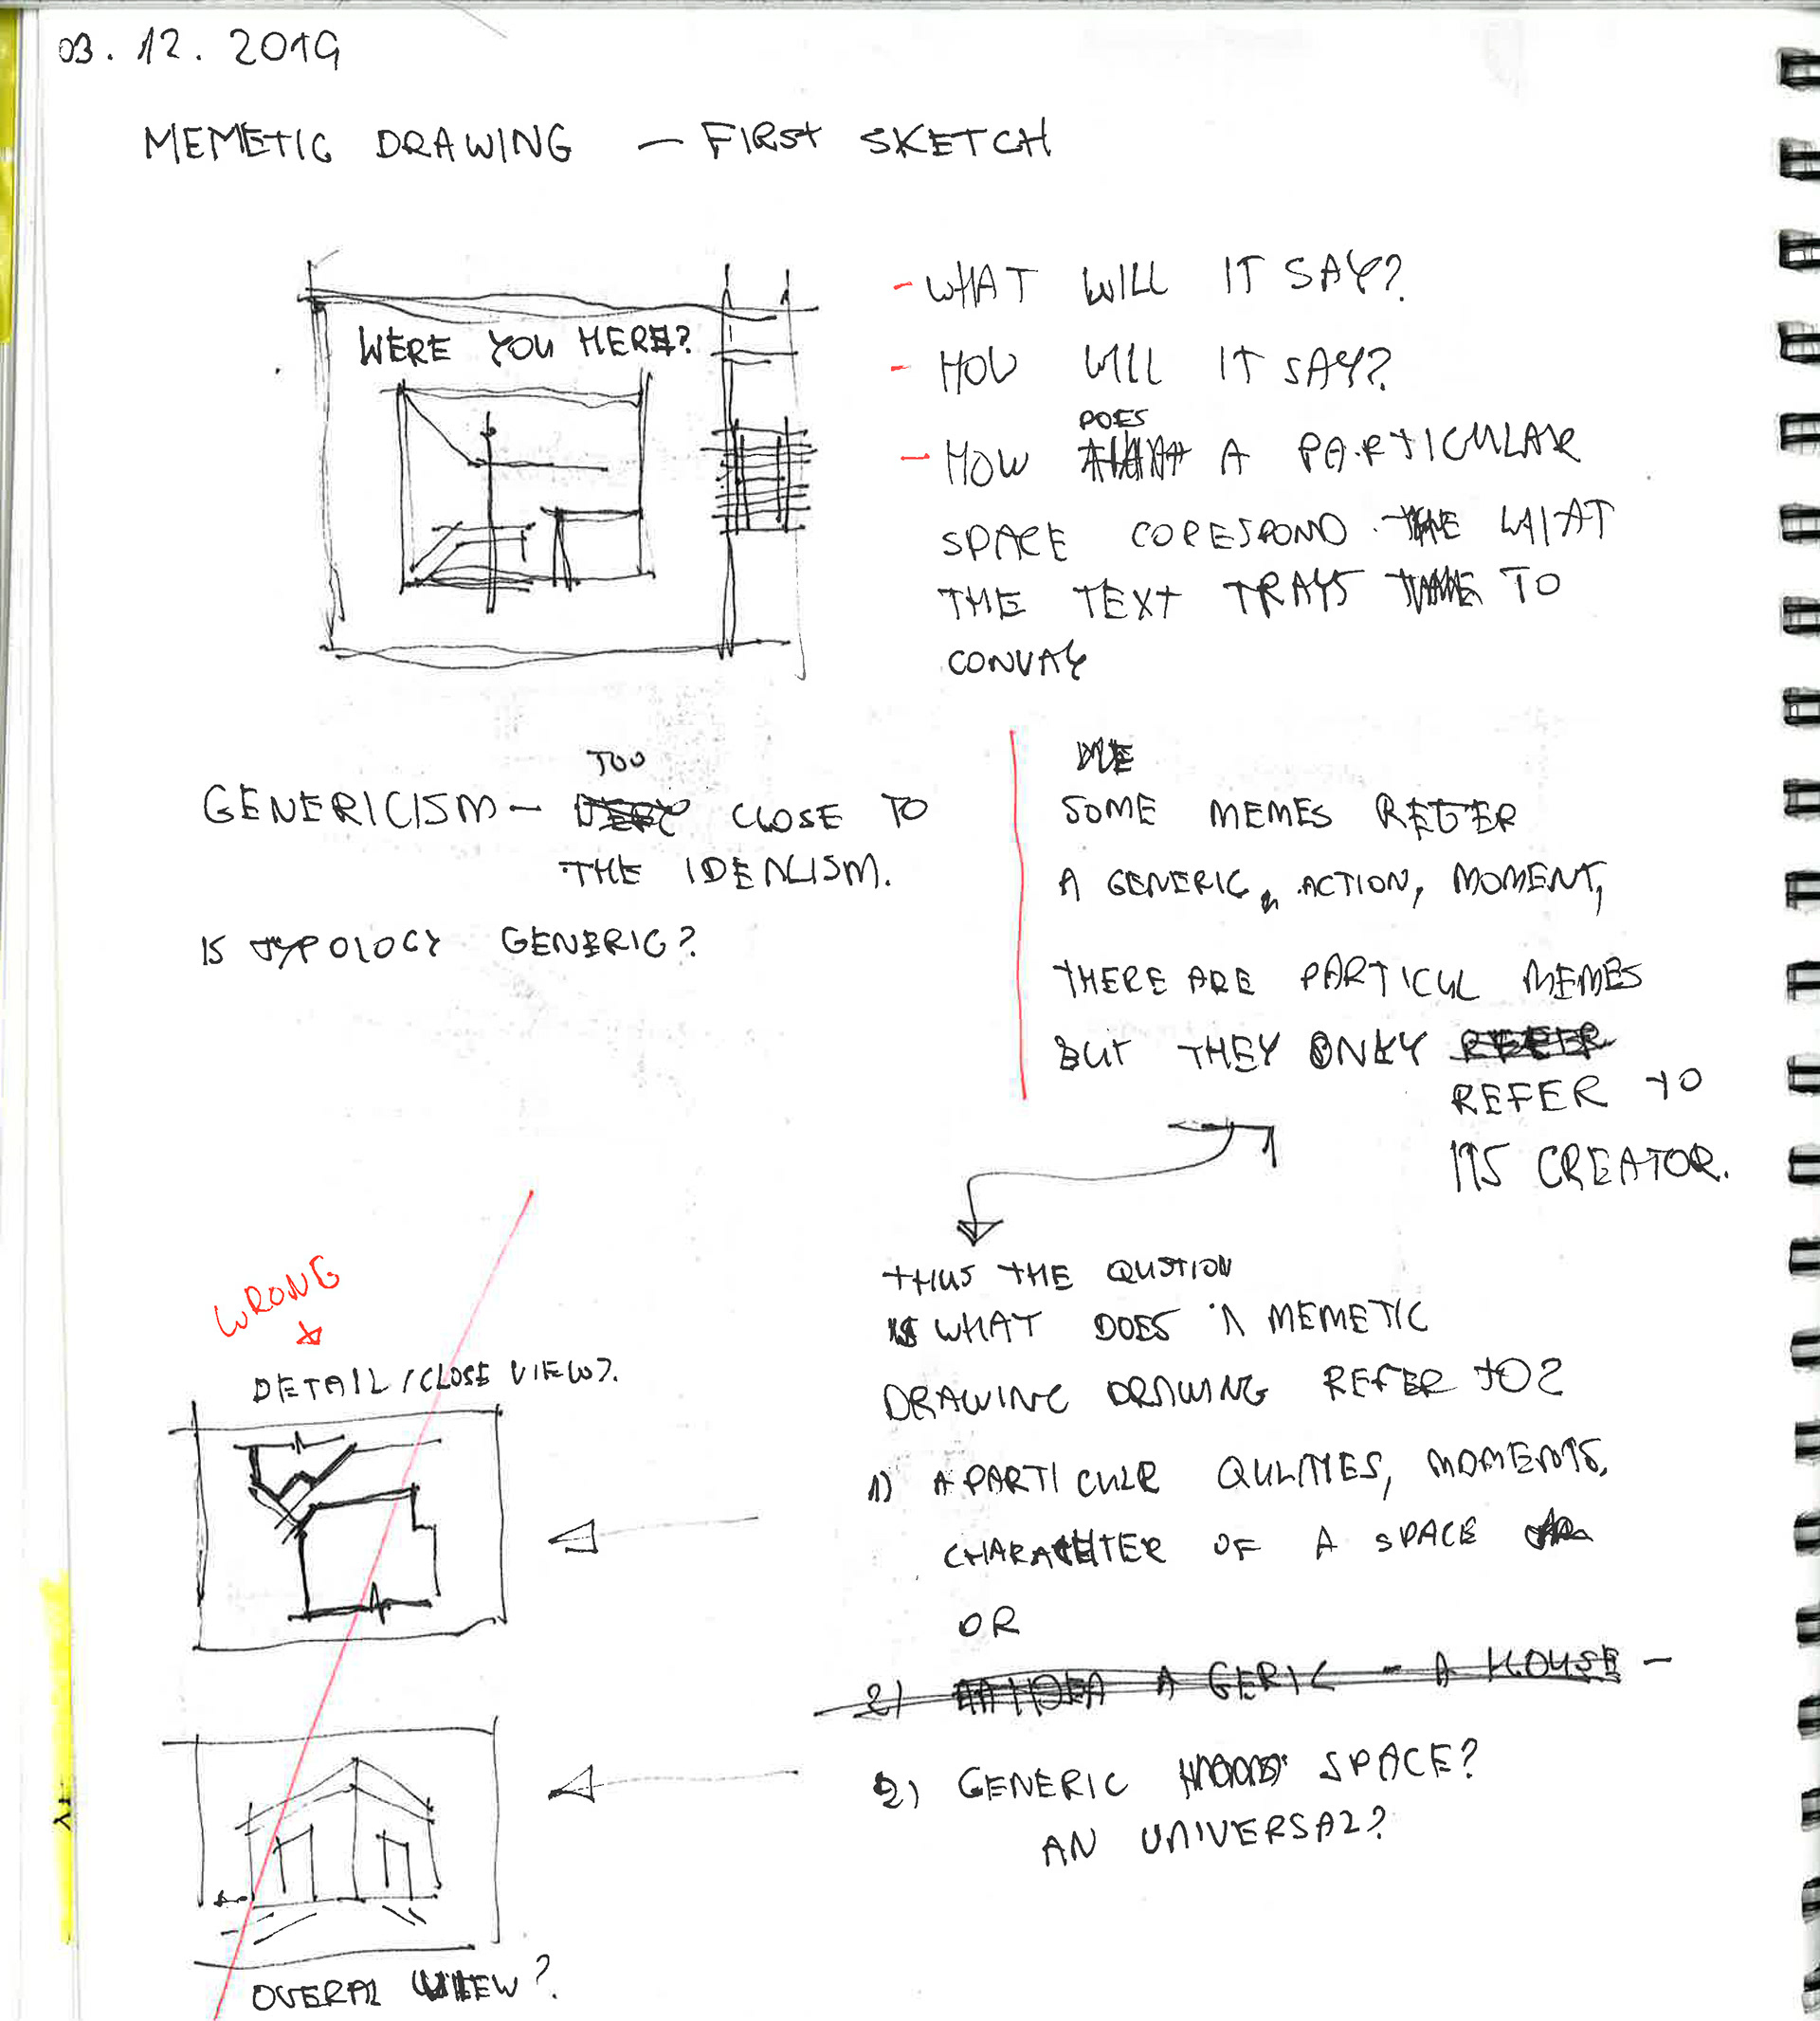 03. 12. 2019
MEMETIC DRAWING — FIRST SKETCH
WERE YOU HERE?
- WHAT WILL IT SAY?
- HOW WILL IT SAY?
DOES
- HOW A PARTICULAR
SPACE CORESPOND THE WHAT
THE TEXT TRAYS TO
CONVAY
TOO
GENERICISM - VERY CLOSE TO
THE IDEALISM.
IS TYPOLOGY GENERIC?
WE
SOME MEMES REFER
A GENERIC, ACTION, MOMENT,
THERE ARE PARTICUL MEMES
BUT THEY ONLY REFER
REFER TO
ITS CREATOR.
THUS THE QUSTION
IS WHAT DOES A MEMETIC
DRAWING DRAWING REFER TO?
1) A PARTICULR QULITIES, MOMENTS,
CHARACHTER OF A SPACE
OR
2) AN IDEA A GERIC - A HOUSE -
2) GENERIC SPACE?
AN UNIVERSAL?
WRONG
DETAIL / CLOSE VIEW?
OVERAL VIEW?